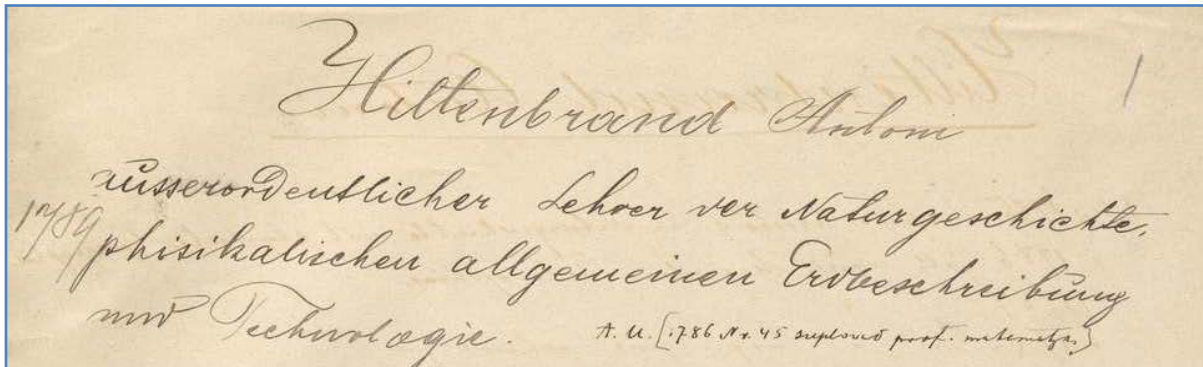 Hiltenbrand Antoni
ausserordentlicher Lehrer der Naturgeschichte,
1789 phisikalischen allgemeinen Erdbeschreibung
und Technologie.
A. U. [1786 Nr. 45 suplował prof. matematyk.]